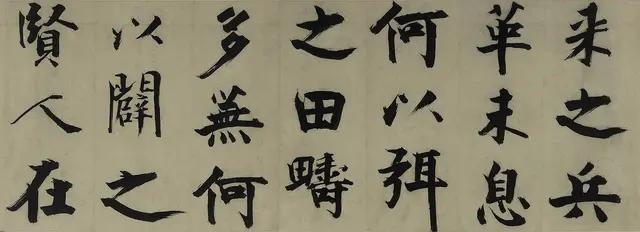 来之兵
革未息
何以弭
之田疇
多蕪何
以闢之
賢人在